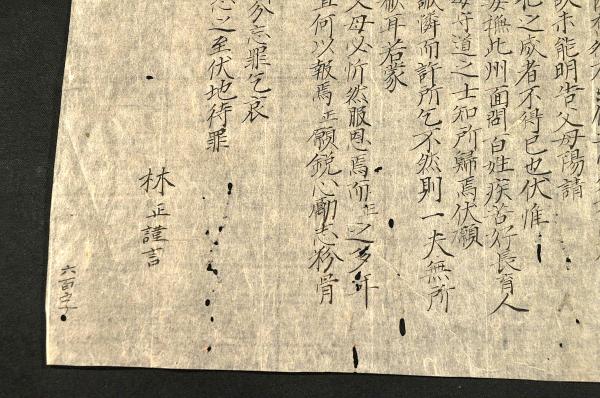 未能明告父母陽請
化之成者不得已也伏惟
撫此州面問百姓疾苦行長育人
道之士知所歸焉伏願
憐而許所乞不然則一夫無所
獻耳若蒙
父母必忻然服恩焉而正之多年
何以報焉正願鋭心勵志粉骨
忘罪乞哀
之至伏地待罪
林正謹言
六百字